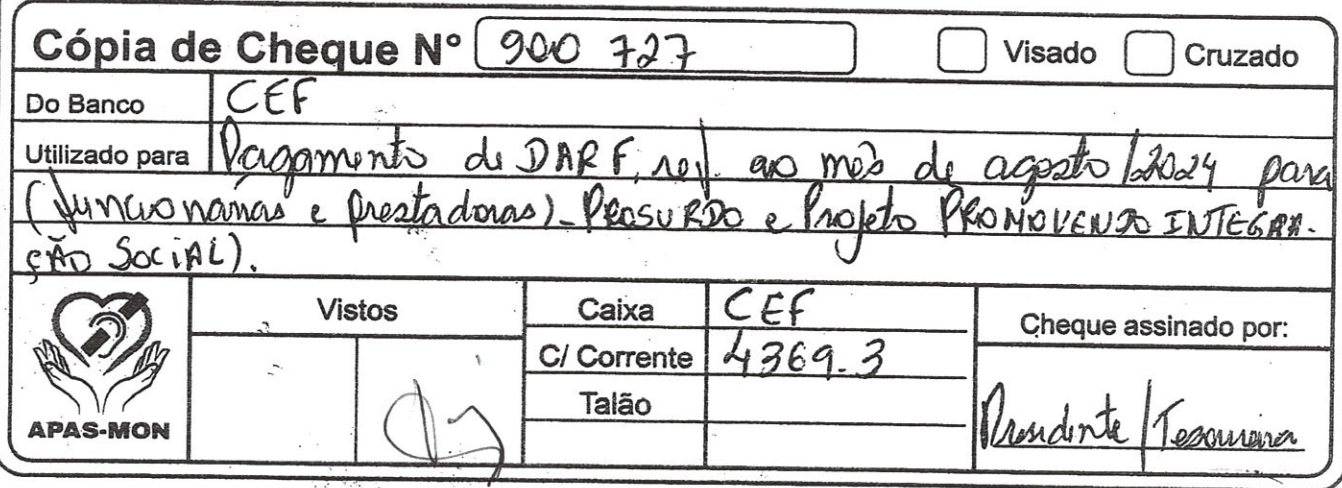 Cópia de Cheque Nº 900 727 Visado Cruzado
Do Banco CEF
Utilizado para Pagamento de DARF, ref. ao mês de agosto/2024 para
(funcionárias e prestadoras)_PROSURDO e Projeto PROMOVENDO INTEGRA-
ÇÃO SOCIAL).
Vistos
Caixa CEF
Cheque assinado por:
C/ Corrente 4369.3
Talão
APAS-MON
Presidente / Tesoureira